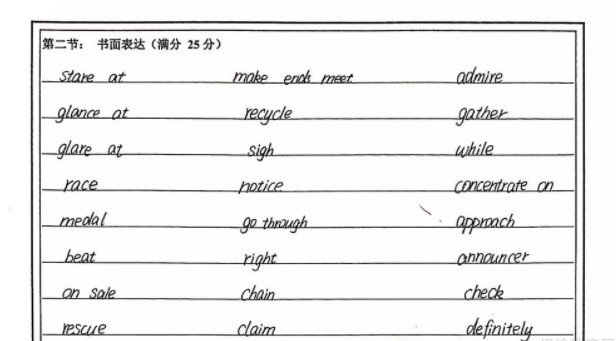 第二节： 书面表达（满分 25 分）
stare at make ends meet admire
glance at recycle gather
glare at sigh while
race notice concentrate on
medal go through approach
beat right announcer
on sale chain check
rescue claim definitely